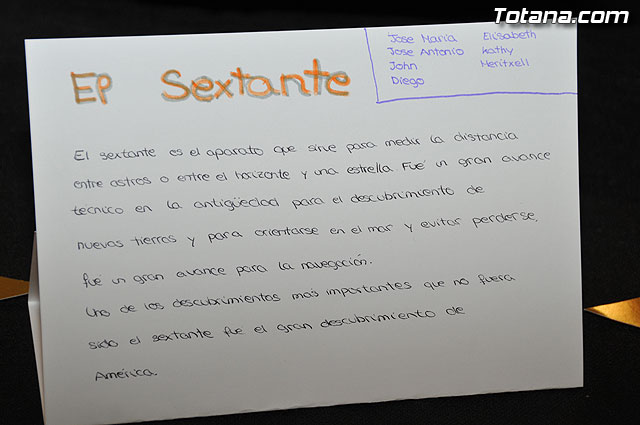 Totana.com
Jose Maria Elisabeth
Jose Antonio Kathy
John Meritxell
Diego
EP Sextante
El sextante es el aparato que sirve para medir la distancia
entre astros o entre el horizonte y una estrella. Fué un gran avance
técnico en la antigüedad para el descubrimiento de
nuevas tierras y para orientarse en el mar y evitar perderse,
fué un gran avance para la navegación.
Uno de los descubrimientos más importantes que no fuera
sido el sextante fue el gran descubrimiento de
América.